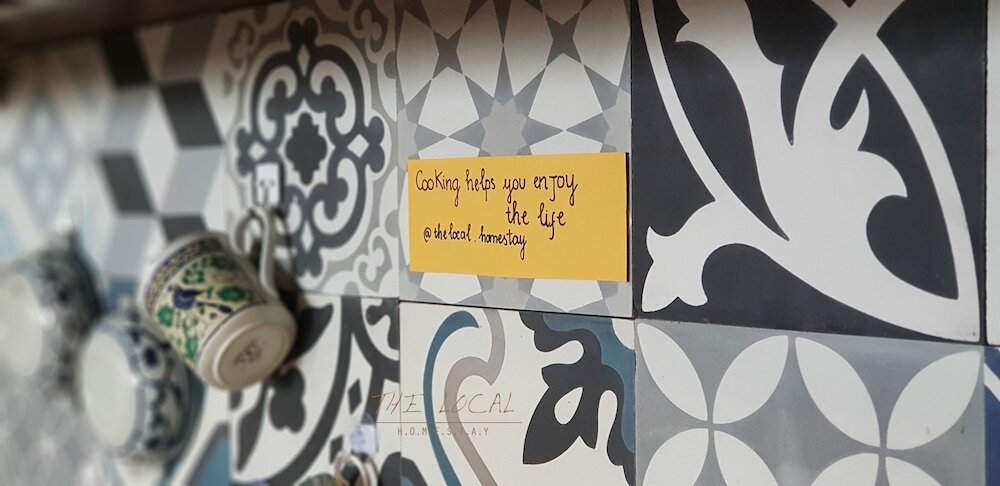 Cooking helps you enjoy
the life
@thelocal.homestay
THE LOCAL
H.O.M.E.S.T.A.Y